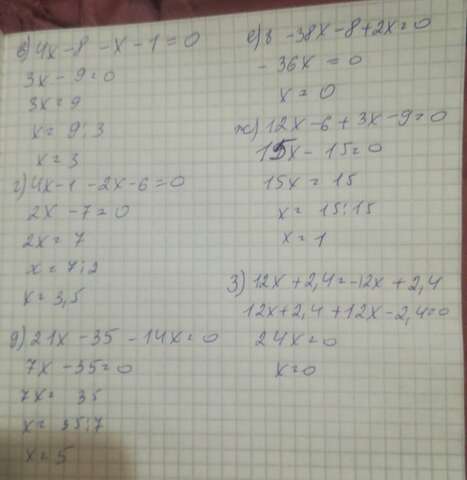 в) 4x - 8 - x - 1 = 0
3x - 9 = 0
3x = 9
x = 9 : 3
x = 3
г) 4x - 1 - 2x - 6 = 0
2x - 7 = 0
2x = 7
x = 7 : 2
x = 3,5
д) 21x - 35 - 14x = 0
7x - 35 = 0
7x = 35
x = 35 : 7
x = 5
е) 8 - 38x - 8 + 2x = 0
- 36x = 0
x = 0
ж) 12x - 6 + 3x - 9 = 0
15x - 15 = 0
15x = 15
x = 15 : 15
x = 1
з) 12x + 2,4 = -12x + 2,4
12x + 2,4 + 12x - 2,4 = 0
24x = 0
x = 0